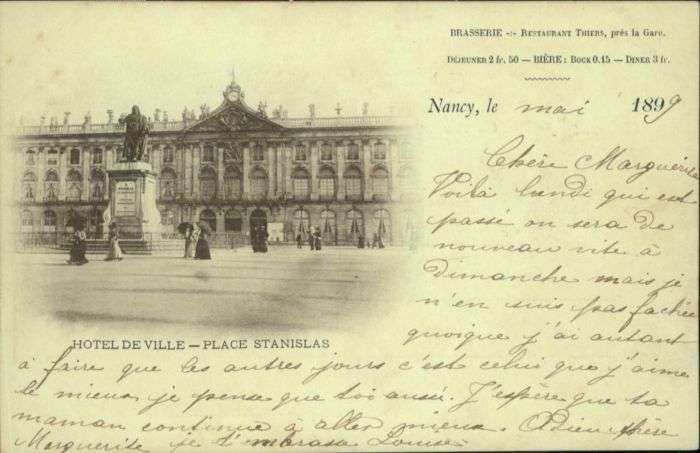 BRASSERIE -:- RESTAURANT THIERS, près la Gare.
DÉJEUNER 2 fr. 50 — BIÈRE : BOCK 0.15 — DINER 3 fr.
Nancy, le mai 1899
Chère Marguerite
Voilà lundi qui est
passé on sera de
nouveau vite à
Dimanche mais je
n'en suis pas fachée
quoique j'ai autant
HOTEL DE VILLE — PLACE STANISLAS
à faire que les autres jours c'est celui que j'aime
le mieux, je pense que toi aussi. J'espère que ta
maman continue à aller mieux. Adieu chère
Marguerite je t'embrasse Louise